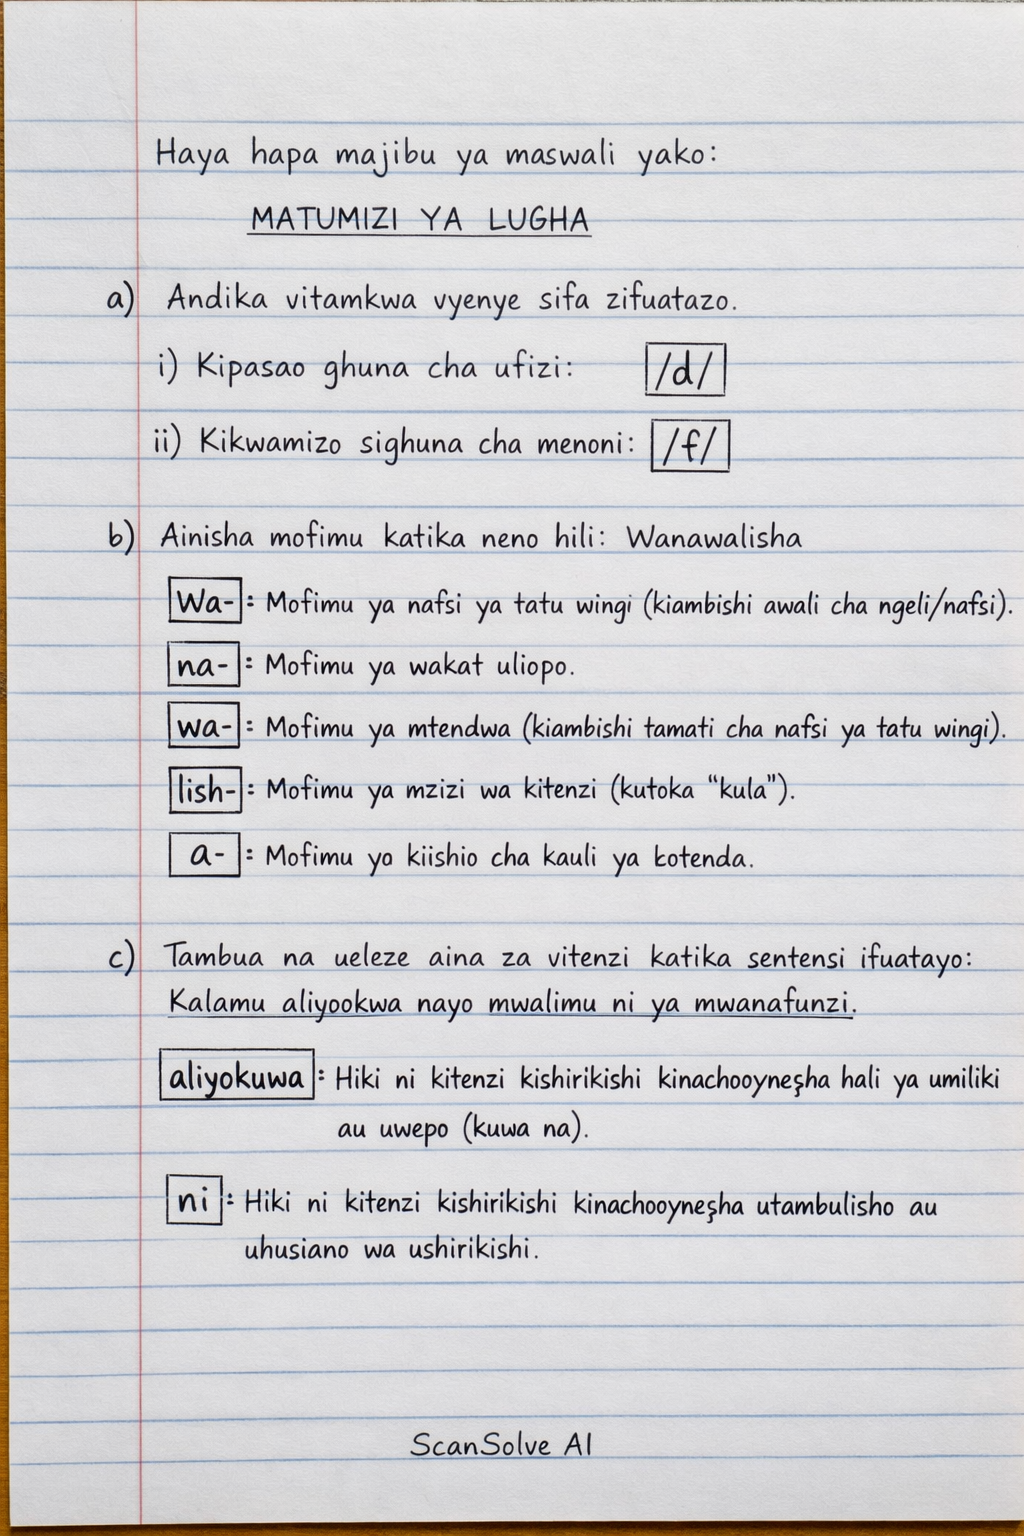 Haya hapa majibu ya maswali yako:
MATUMIZI YA LUGHA
a) Andika vitamkwa vyenye sifa zifuatazo.
i) Kipasao ghuna cha ufizi: /d/
ii) Kikwamizo sighuna cha menoni: /f/
b) Ainisha mofimu katika neno hili: Wanawalisha
Wa-: Mofimu ya nafsi ya tatu wingi (kiambishi awali cha ngeli/nafsi).
na-: Mofimu ya wakat uliopo.
wa-: Mofimu ya mtendwa (kiambishi tamati cha nafsi ya tatu wingi).
lish-: Mofimu ya mzizi wa kitenzi (kutoka "kula").
a-: Mofimu yo kiishio cha kauli ya kotenda.
c) Tambua na ueleze aina za vitenzi katika sentensi ifuatayo:
Kalamu aliyookwa nayo mwalimu ni ya mwanafunzi.
aliyokuwa: Hiki ni kitenzi kishirikishi kinachooyneşha hali ya umiliki
au uwepo (kuwa na).
ni: Hiki ni kitenzi kishirikishi kinachooyneşha utambulisho au
uhusiano wa ushirikishi.
ScanSolve AI